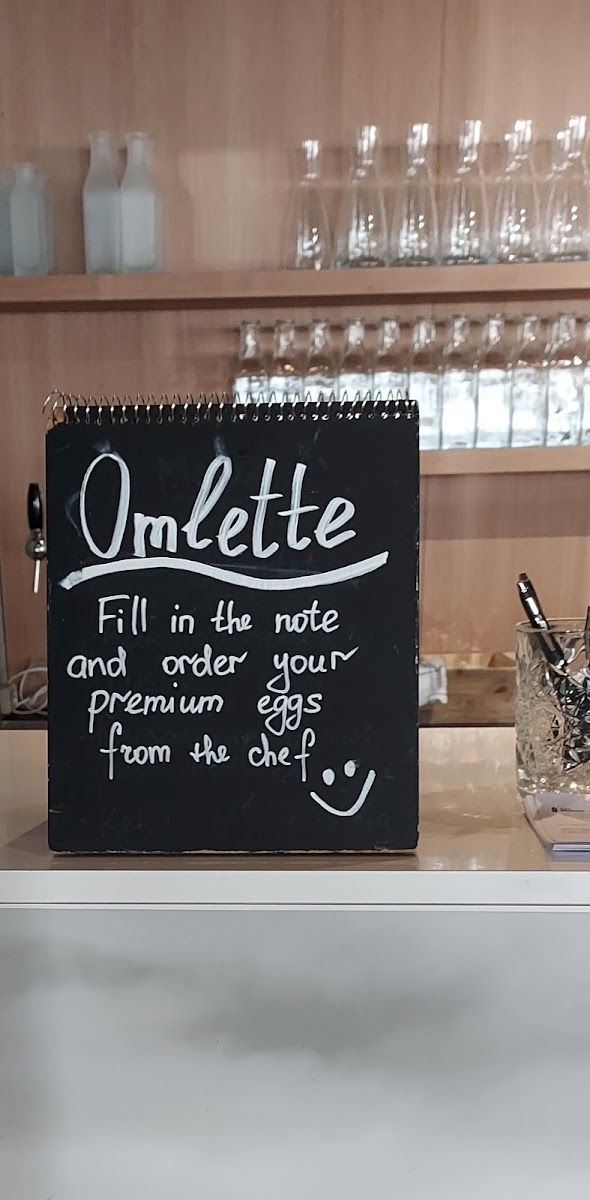 Omlette
Fill in the note
and order your
premium eggs
from the chef